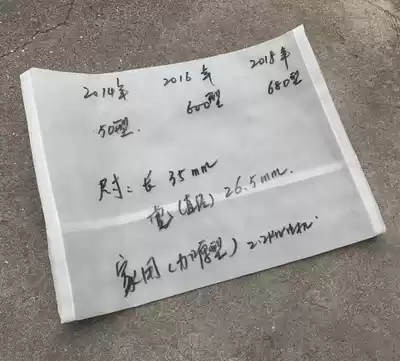 2014年 2016年 2018年
50型. 600型 680型
尺寸: 长 35mm
宽(直径) 26.5mm.
家用(加厚型)